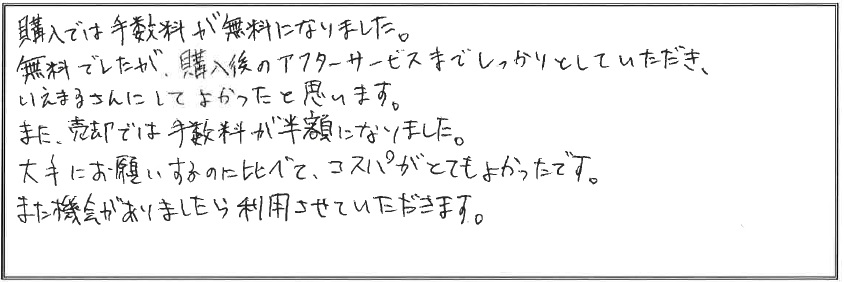 購入では手数料が無料になりました。
無料でしたが、購入後のアフターサービスまでしっかりとしていただき、
いえまるさんにしてよかったと思います。
また、売却では手数料が半額になりました。
大手にお願いするのに比べて、コスパがとてもよかったです。
また機会がありましたら利用させていただきます。